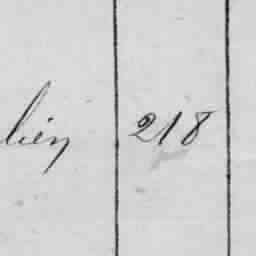 lien 218